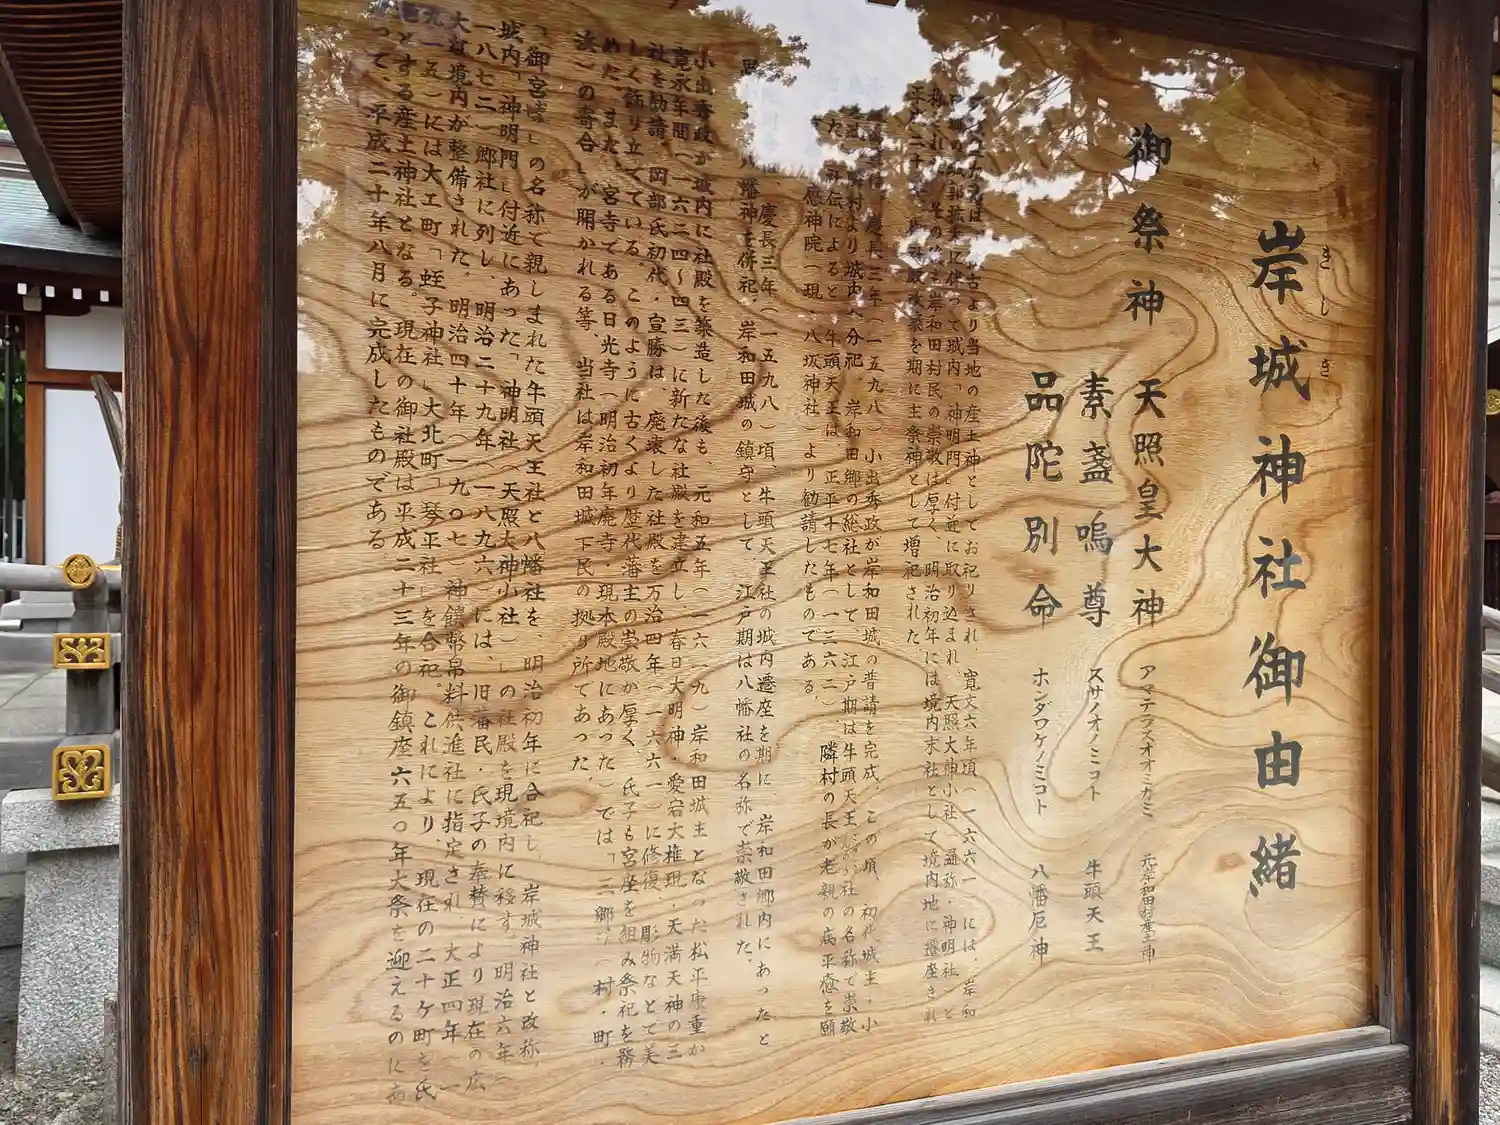 岸城神社御由緒
きしき
御祭神
天照皇大神 アマテラスオオミカミ 元岸和田村産土神
素盞嗚尊 スサノオノミコト 牛頭天王
品陀別命 ホンダワケノミコト 八幡厄神
古より当地の産土神としてお祀りされ、寛文六年頃(一六六一)には、岸和
に伴って城内「神明門」付近に取り込まれ、天照大神小社(通称・神明社)と
岸和田村民の崇敬は厚く、明治初年には境内末社として境内地に遷座され
を期に主祭神として増祀された。
慶長三年(一五九八)小出秀政が岸和田城の普請を完成。この頃、初代城主・小
村より城内へ分祀。岸和田郷の総社として、江戸期は牛頭天王社の名称で崇敬
伝によると、牛頭天王は、正平十七年(一三六二)、隣村の長が老親の病平癒を願
感神院(現、八坂神社)より勧請したものである。
、慶長三年(一五九八)頃、牛頭天王社の城内遷座を期に、岸和田郷内にあったと
八幡神を併祀。岸和田城の鎮守として、江戸期は八幡社の名称で崇敬された。
小出秀政が城内に社殿を築造した後も、元和五年(一六一九)岸和田城主となった松平康重が
寛永年間(一六二四〜四三)に新たな社殿を建立し、春日大明神・愛宕大権現・天満天神の三
社を勧請、岡部氏初代・宣勝は、廃壊した社殿を万治四年(一六六一)に修復、彫物などで美
しく飾り立てている。このように古くより歴代藩主の崇敬が厚く、氏子も宮座を組み祭祀を務
めた。また、宮寺である日光寺(明治初年廃寺・現本殿地にあった)では「三郷
の寄合」が開かれる等、当社は岸和田城下民の拠り所であった。
「御宮」の名称で親しまれた牛頭天王社と八幡社を、明治初年に合祀し、岸城神社と改称。
城内「神明門」付近にあった「神明社(天照大神小社)」の社殿を現境内に移す。明治六年(
一八七二)郷社に列し、明治二十九年(一八九六)には、旧藩民・氏子の奉賛により現在の広
大な境内が整備された。明治四十年(一九〇七)神饌幣帛料供進社に指定され、大正四年(一
九一五)には大工町「蛭子神社」大北町「琴平社」を合祀。これにより、現在の二十ヶ町を氏
とする産土神社となる。現在の御社殿は平成二十三年の御鎮座六五〇年大祭を迎えるのにあ
って、平成二十年八月に完成したものである。